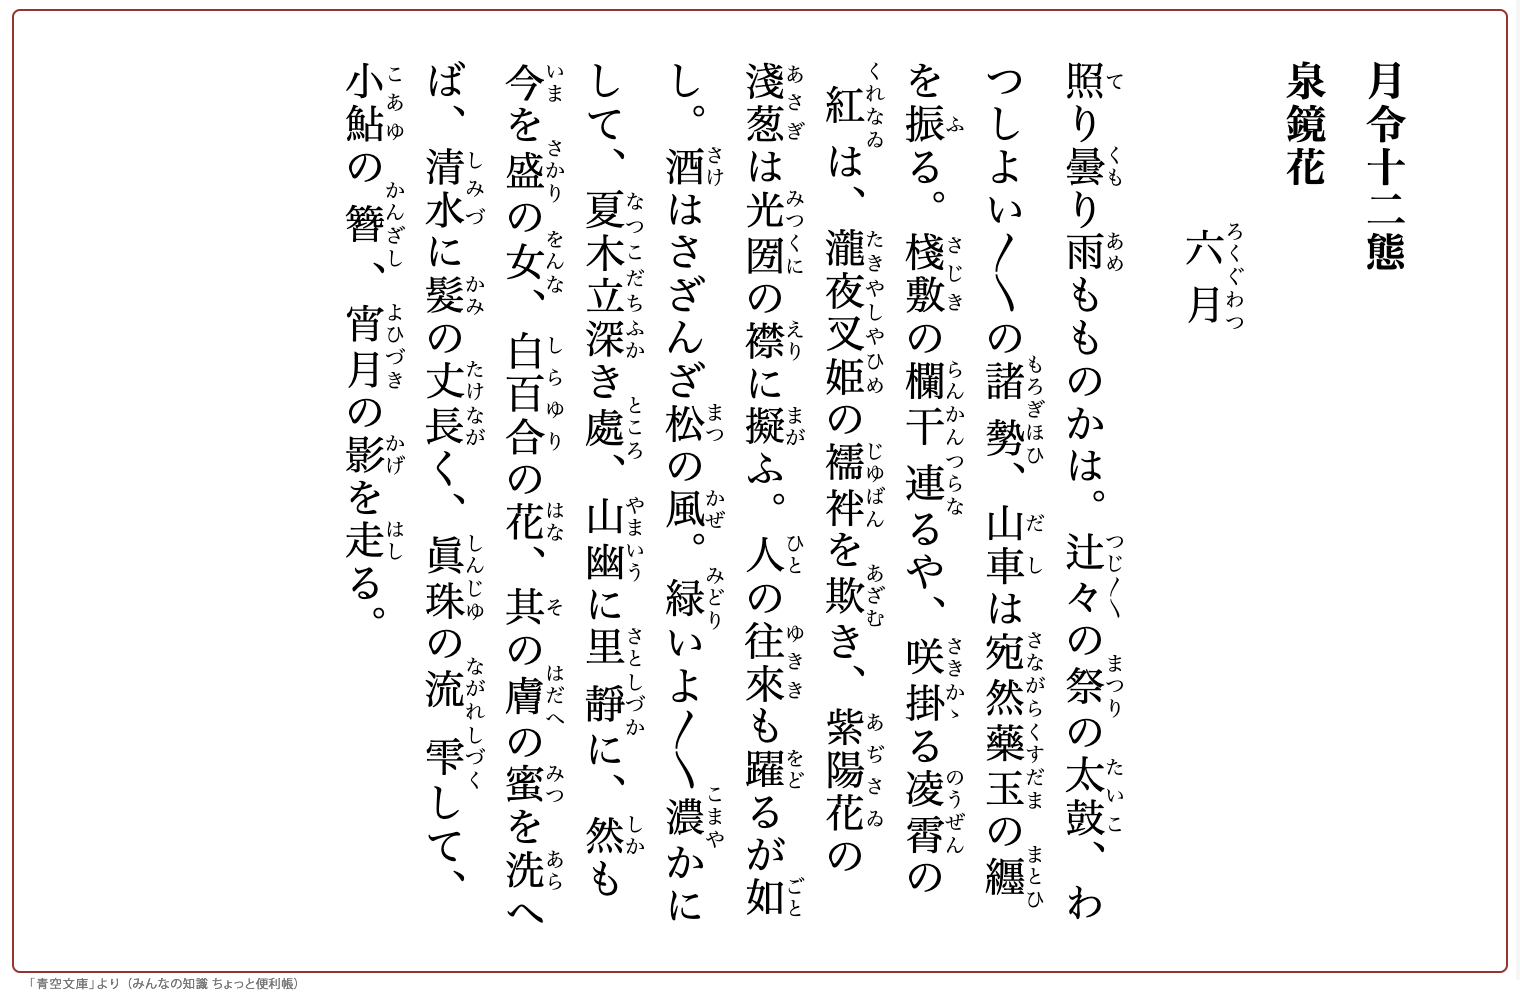 月令十二態
泉鏡花
六月
照り曇り雨もものかは。辻々の祭の太鼓、わ
つしよい〳〵の諸勢、山車は宛然藥玉の纒
を振る。棧敷の欄干連るや、咲掛る凌霄の
紅は、瀧夜叉姫の襦袢を欺き、紫陽花の
淺葱は光圀の襟に擬ふ。人の往來も躍るが如
し。酒はさざんざ松の風。緑いよ〳〵濃かに
して、夏木立深き處、山幽に里靜に、然も
今を盛の女、白百合の花、其の膚の蜜を洗へ
ば、清水に髮の丈長く、眞珠の流雫して、
小鮎の簪、宵月の影を走る。
「青空文庫」より（みんなの知識 ちょっと便利帳）